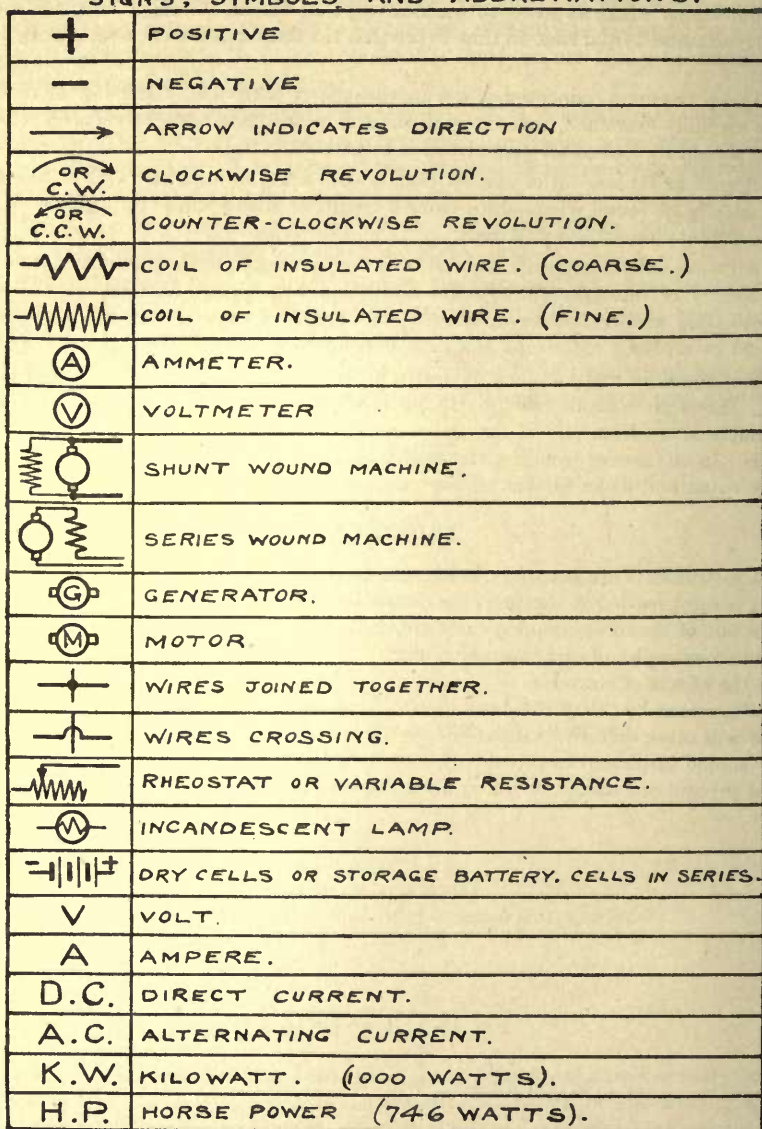 SIGNS, SYMBOLS, AND ABBREVIATIONS.
+ POSITIVE
− NEGATIVE
ARROW INDICATES DIRECTION
OR C.W. CLOCKWISE REVOLUTION.
OR C.C.W. COUNTER-CLOCKWISE REVOLUTION.
COIL OF INSULATED WIRE. (COARSE.)
COIL OF INSULATED WIRE. (FINE.)
A AMMETER.
V VOLTMETER
SHUNT WOUND MACHINE.
SERIES WOUND MACHINE.
G GENERATOR.
M MOTOR
WIRES JOINED TOGETHER.
WIRES CROSSING.
RHEOSTAT OR VARIABLE RESISTANCE.
INCANDESCENT LAMP.
- + DRY CELLS OR STORAGE BATTERY. CELLS IN SERIES.
V VOLT.
A AMPERE.
D.C. DIRECT CURRENT.
A.C. ALTERNATING CURRENT.
K.W. KILOWATT. (1000 WATTS).
H.P. HORSE POWER (746 WATTS).